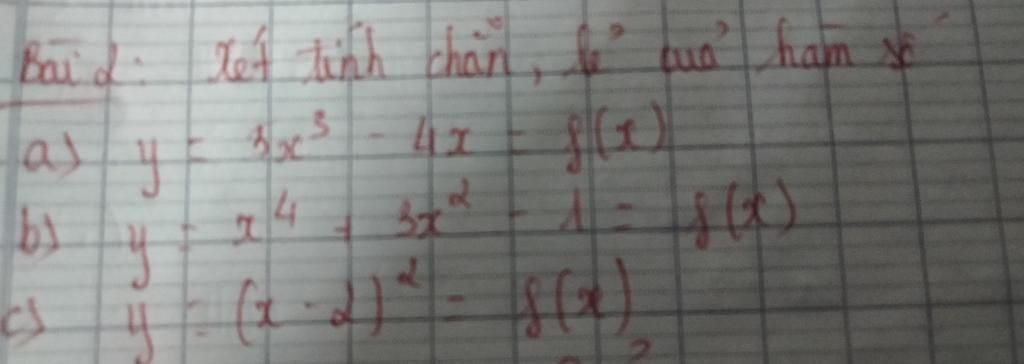 Bài 2: Xét tính chẵn, lẻ của hàm số
a) y = 3x³ - 4x = f(x)
b) y = x⁴ + 3x² - 1 = f(x)
c) y = (x - 2)² = f(x)